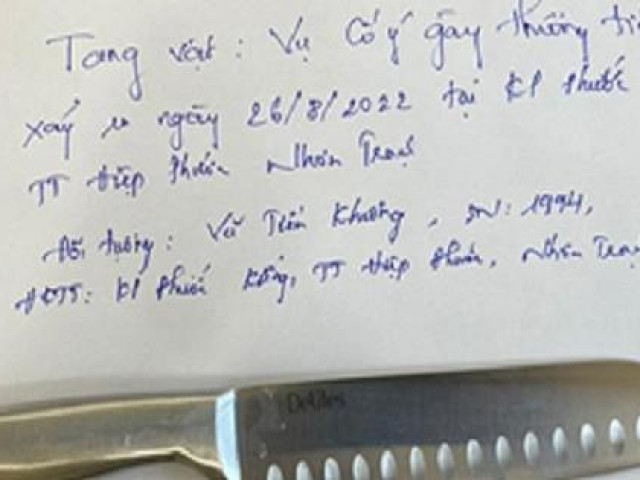 Tang vật: Vụ Cố ý gây thương tí
xảy ra ngày 26/8/2022 tại KP Phước
TT Hiệp Phước Nhơn Trạch
Đối tượng: Vũ Tiến Khương, SN: 1994,
HKTT: KP Phước, TT Hiệp Phước, Nhơn Trạch